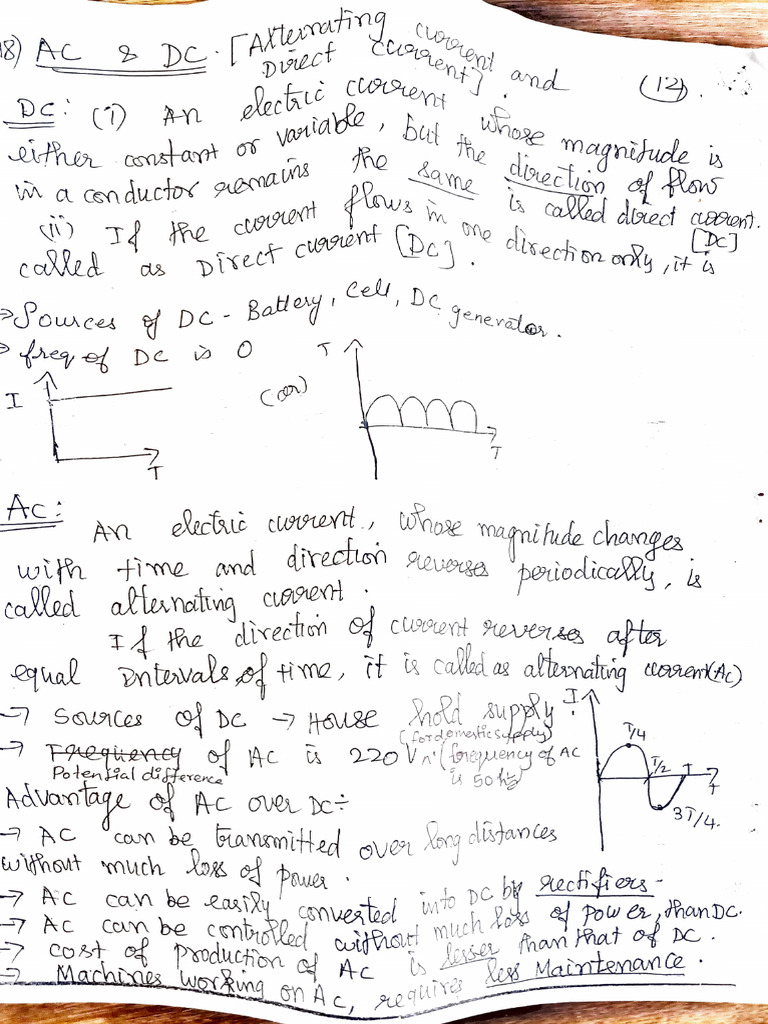 18) AC & DC. [Alternating current and
Direct current].
(12).
DC: (i) An electric current whose magnitude is
either constant or variable, but the direction of flow
in a conductor remains the same is called direct current.
[DC]
(ii) If the current flows in one direction only, it is
called as Direct current [DC].
→ Sources of DC - Battery, Cell, DC generator.
→ freq of DC is 0
I
T
(or)
T
T
AC:
An electric current, whose magnitude changes
with time and direction reverses periodically, is
called alternating current.
If the direction of current reverses after
equal Intervals of time, it is called as alternating current (AC)
→ Sources of DC → House hold supply.
(for domestic supply)
→ Frequency of AC is 220V (frequency of AC
Potential difference
is 50 hz)
I
T/4
T/2
T
T
3T/4.
Advantage of AC over DC ÷
→ AC can be transmitted over long distances
without much loss of power.
→ AC can be easily converted into DC by rectifiers -
→ AC can be controlled without much loss of power, than DC.
→ cost of production of AC is lesser than that of DC.
→ Machines working on AC, requires less Maintenance.